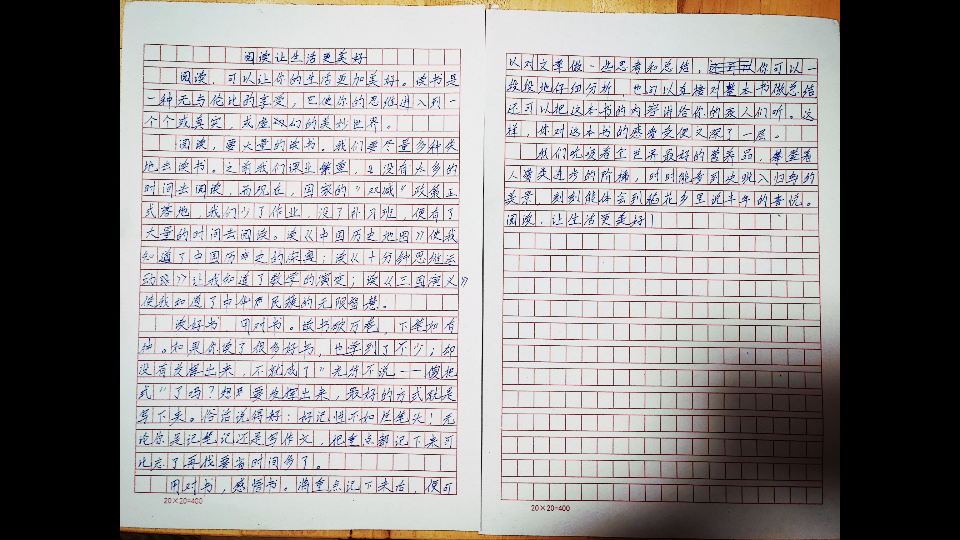 阅读让生活更美好
阅读，可以让你的生活更加美好。读书是
一种无与伦比的享受，它使你的思维进入到一
个个或真实，或虚幻的美妙世界。
阅读，要大量的读书。我们要尽量多种类
地去读书。之前我们课业繁重，且没有太多的
时间去阅读，而现在，国家的“双减”政策正
式落地，我们少了作业，没了补习班，便有了
大量的时间去阅读。读《中国历史地图》使我
知道了中国历史之的深奥；读《十分钟思维运
动班》让我知道了数学的演变；读《三国演义》
使我知道了中华民族的无限智慧。
读好书，用对书。读书破万卷，下笔如有
神。如果你读了很多好书，也学到了不少；却
没有发挥出来，不就成了“光许不说一一傻把
式”了吗？想要发挥出来，最好的方式就是
写下来。俗话说得好：好记性不如烂笔头！无
论你是记笔记还是写作文，把重点都记下来可
比忘了再找要省时间多了。
用对书，感悟书。将重点记下来后，便可
20×20=400
以对文章做一些思考和总结，你可以一
段段地仔细分析，也可以直接对整本书做总结
还可以把这本书的内容讲给你的家人们听。这
样，你对这本书的感受便又深了一层。
我们吮吸着全世界最好的营养品，攀登着
人类进步的阶梯，时时能看到池归鸟的
美景，刻刻能体会到稻花乡里说丰年的喜悦。
阅读，让生活更美好！
20×20=400